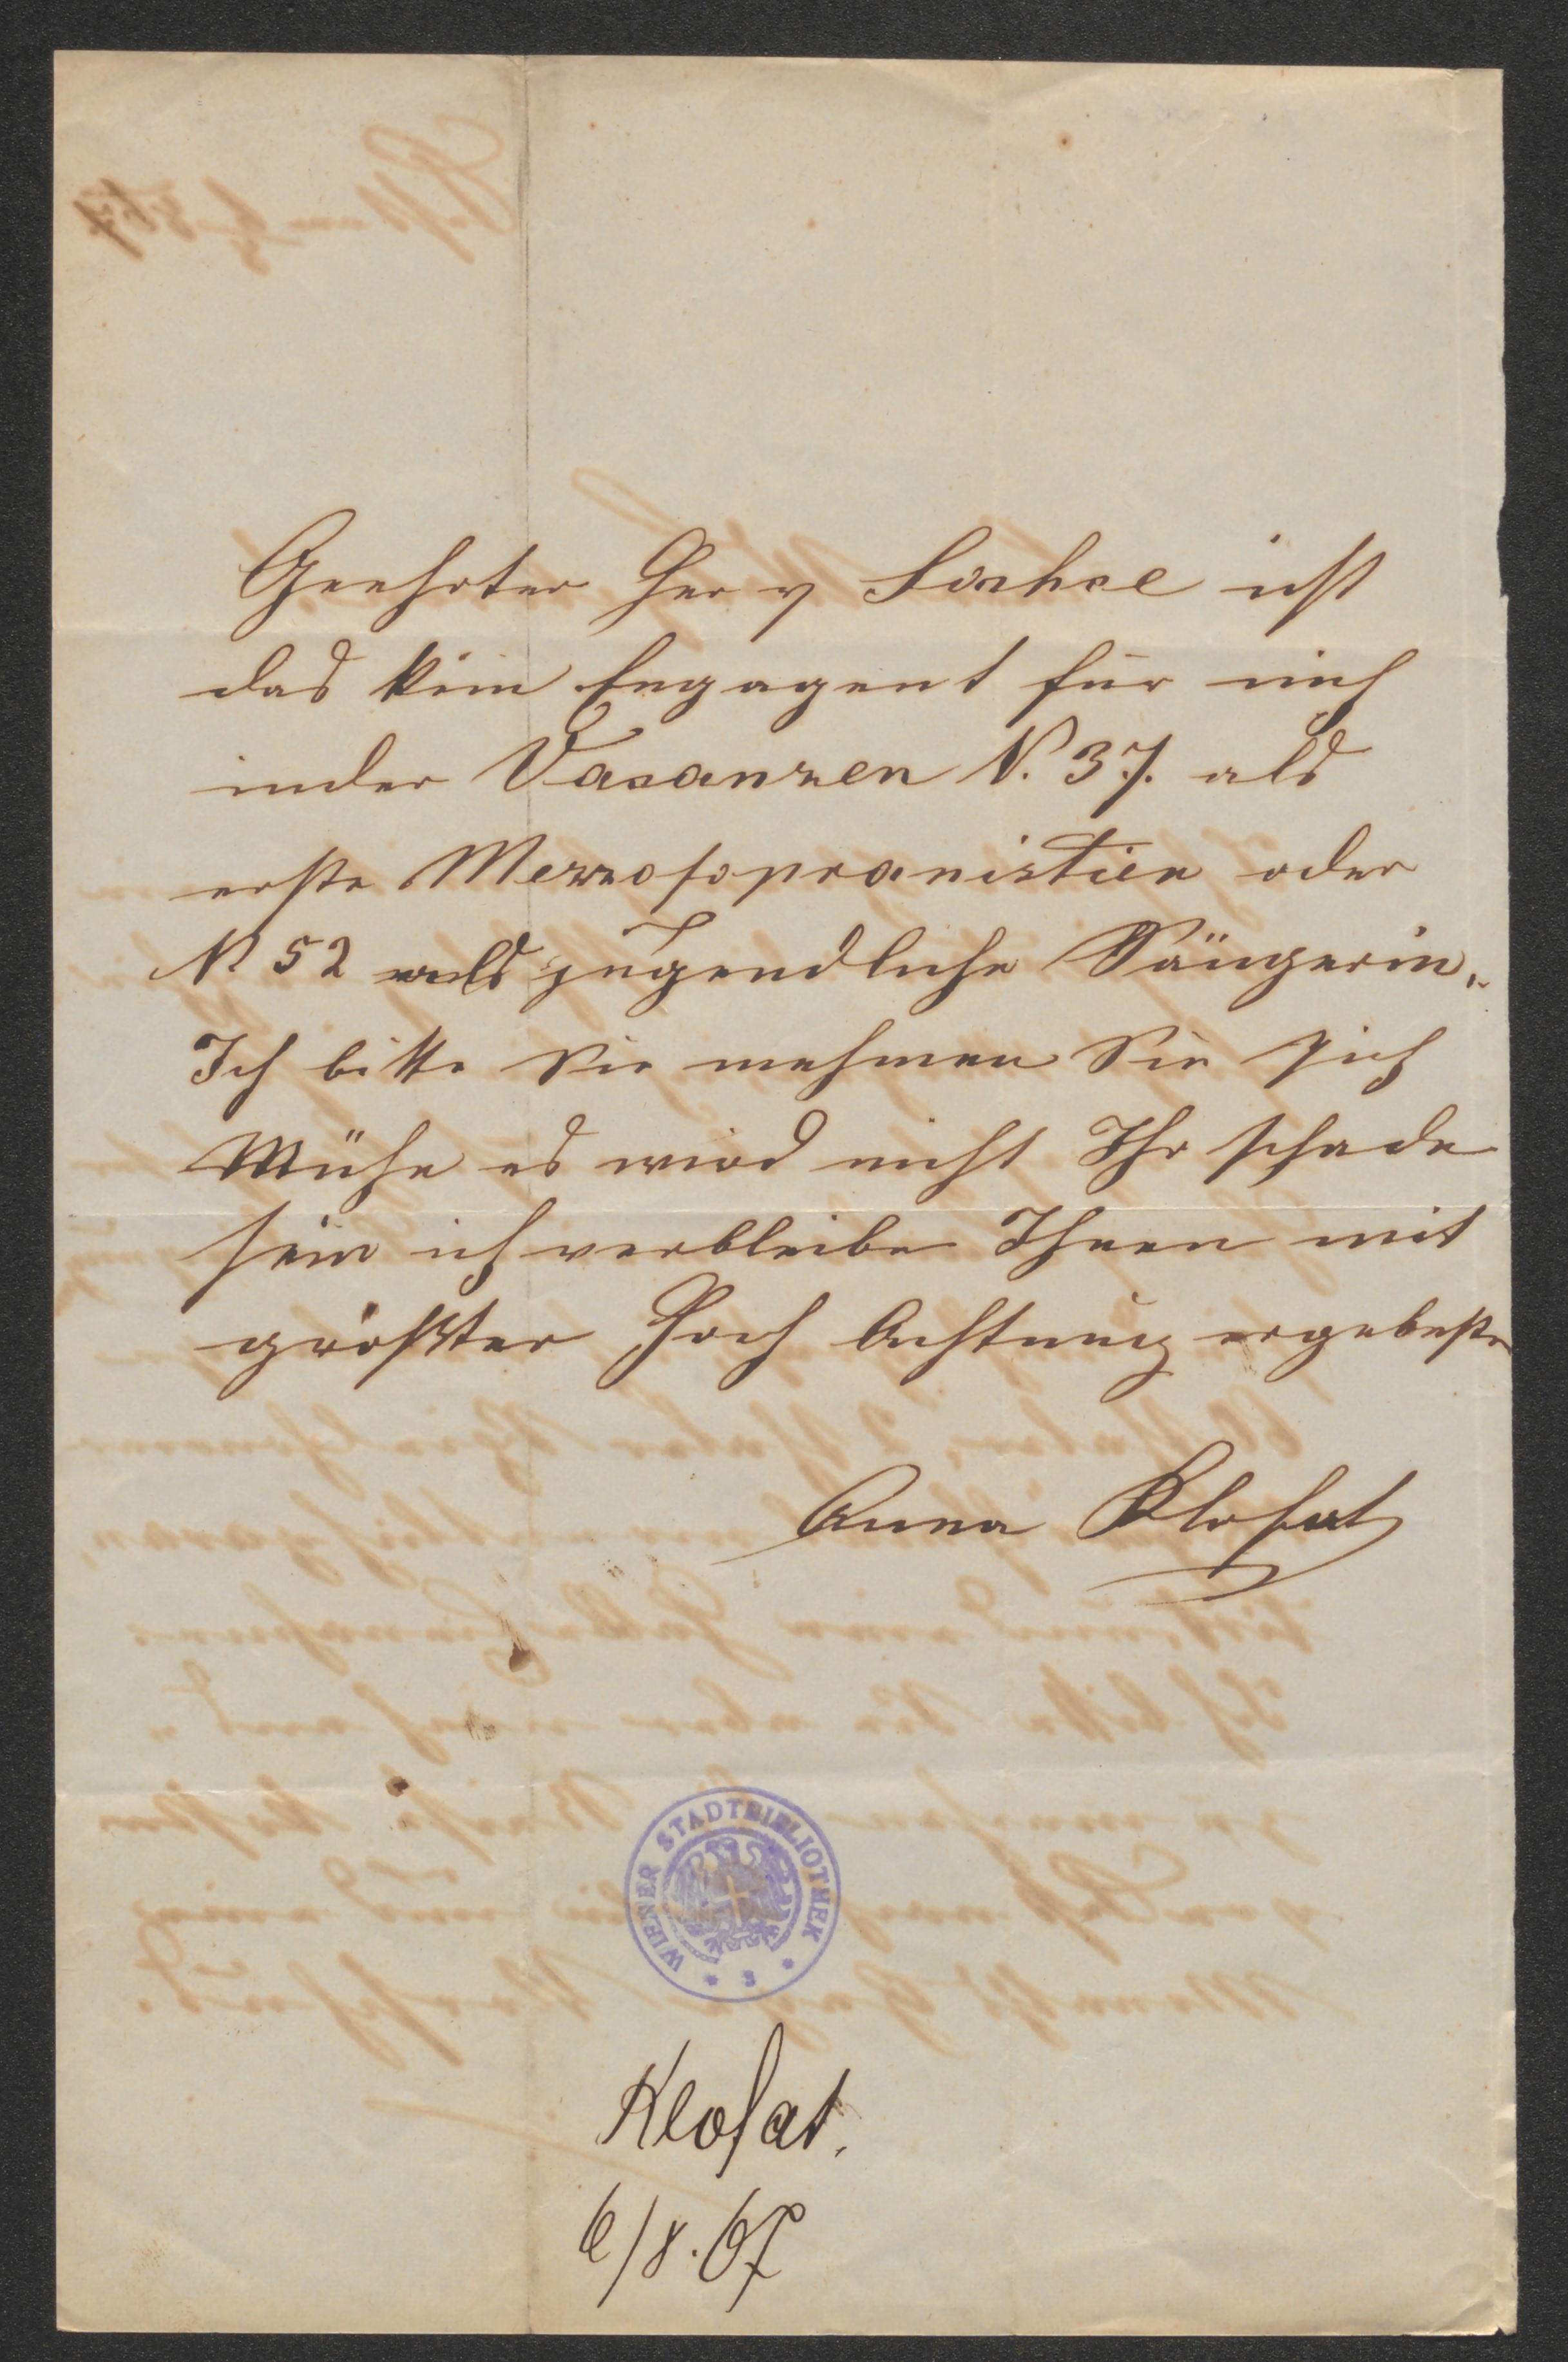 Geehrter Her v Sachse ist
das kein Engagent für mich
in der Vacanzen N. 37. als
erste Mezzosopranistien oder
N 52 als jugendliche Sängerin.
Ich bitte Sie nehmen Sie sich
Mühe es wird nicht Ihr schade
sein ich verbleibe Ihnen mit
größter Hoch Achtung ergebeste
Anna Klofat
WIENER STADTBIBLIOTHEK
Klofat.
6/8.67